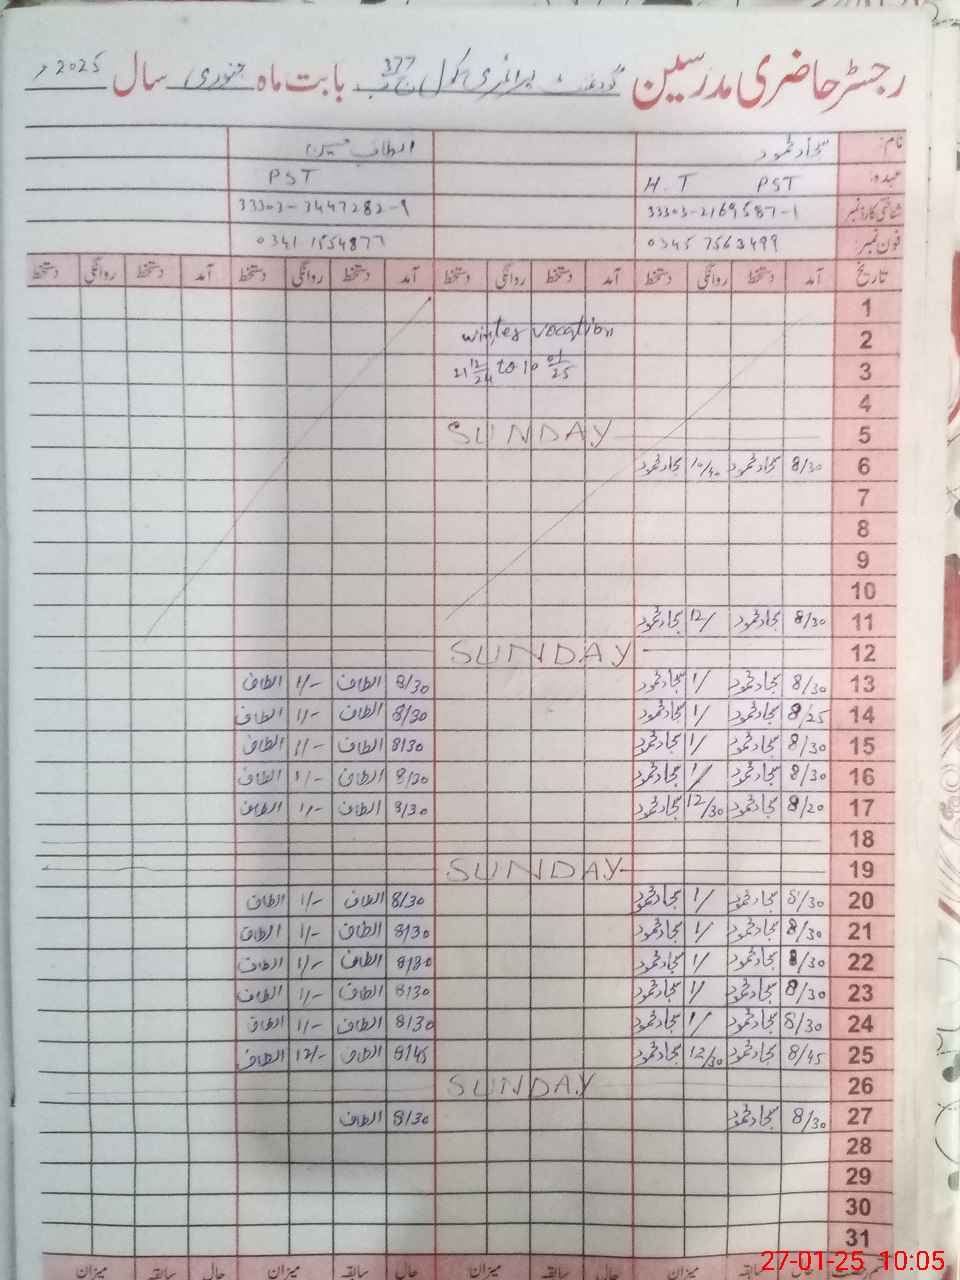 رجسٹر حاضری مدرسین گورنمنٹ پرائمری سکول 377 ج ب بابت ماہ جنوری سال 2025ء
نام: سجاد محمود الطاف حسین
عہدہ: PST H.T PST
شناختی کارڈ نمبر 33303-2169587-1 33303-3447282-9
فون نمبر: 0345 7563499 0341 1554877
تاریخ آمد دستخط روانگی دستخط آمد دستخط روانگی دستخط آمد دستخط روانگی دستخط آمد دستخط روانگی دستخط
1
2 winter vocation
3 21 12/24 to 10 01/25
4
5 SUNDAY
6 8/30 سجاد محمود 10/40 سجاد محمود
7
8
9
10
11 8/30 سجاد محمود 12/ سجاد محمود
12 SUNDAY
13 8/30 سجاد محمود 1/ سجاد محمود 8/30 الطاف 1/- الطاف
14 8/25 سجاد محمود 1/ سجاد محمود 8/30 الطاف 1/- الطاف
15 8/30 سجاد محمود 1/ سجاد محمود 8/30 الطاف 1/- الطاف
16 8/30 سجاد محمود 1/ سجاد محمود 8/30 الطاف 1/- الطاف
17 8/20 سجاد محمود 12/30 سجاد محمود 8/30 الطاف 1/- الطاف
18
19 SUNDAY
20 8/30 سجاد محمود 1/ سجاد محمود 8/30 الطاف 1/- الطاف
21 8/30 سجاد محمود 1/ سجاد محمود 8/30 الطاف 1/- الطاف
22 8/30 سجاد محمود 1/ سجاد محمود 8/30 الطاف 1/- الطاف
23 8/30 سجاد محمود 1/ سجاد محمود 8/30 الطاف 1/- الطاف
24 8/30 سجاد محمود 1/ سجاد محمود 8/30 الطاف 1/- الطاف
25 8/45 سجاد محمود 12/30 سجاد محمود 8/45 الطاف 12/- الطاف
26 SUNDAY
27 8/30 سجاد محمود 8/30 الطاف
28
29
30
31
حال سابقہ میزان حال سابقہ میزان حال سابقہ میزان حال سابقہ میزان
27-01-25 10:05